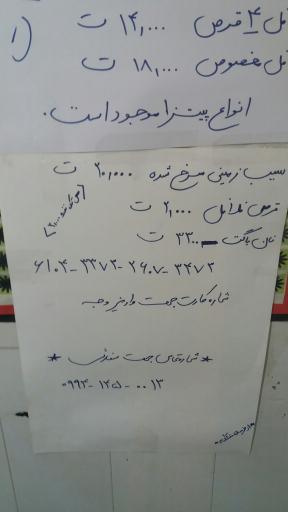 فل ۴ قرص ۱۴,۰۰۰ ت
فل مخصوص ۱۸,۰۰۰ ت
انواع پیتزا موجود است.
سیب زمینی سرخ شده ۲۰,۰۰۰ ت
قرص فلافل ۲,۰۰۰ ت
نان باگت ۳۳۰۰ ت
۶۱۰۴-۳۳۷۳-۲۶۰۷-۳۴۷۳
شماره کارت جهت واریز وجه
* شماره تماس جهت سفارش *
۰۹۹۴-۱۴۵-۰۰۱۳